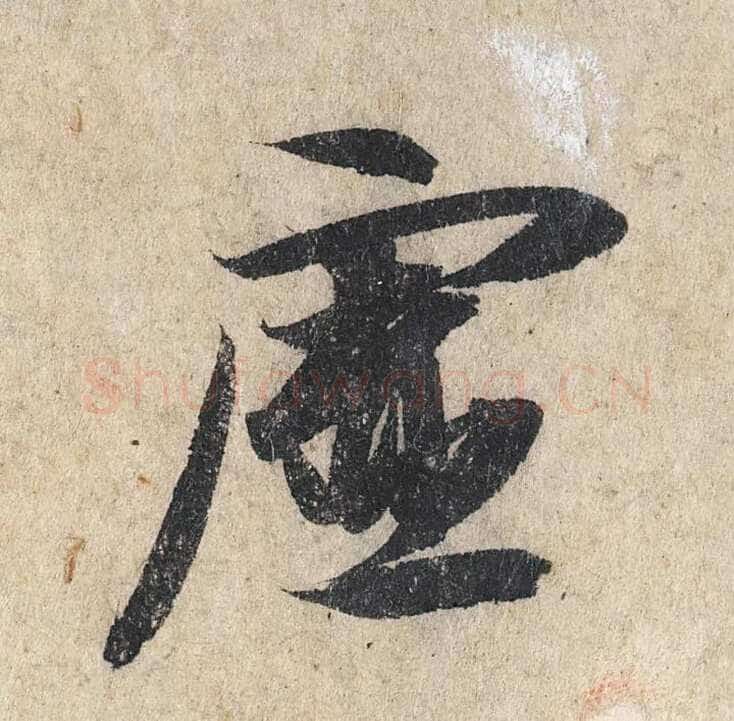 虚
Shufawang.CN